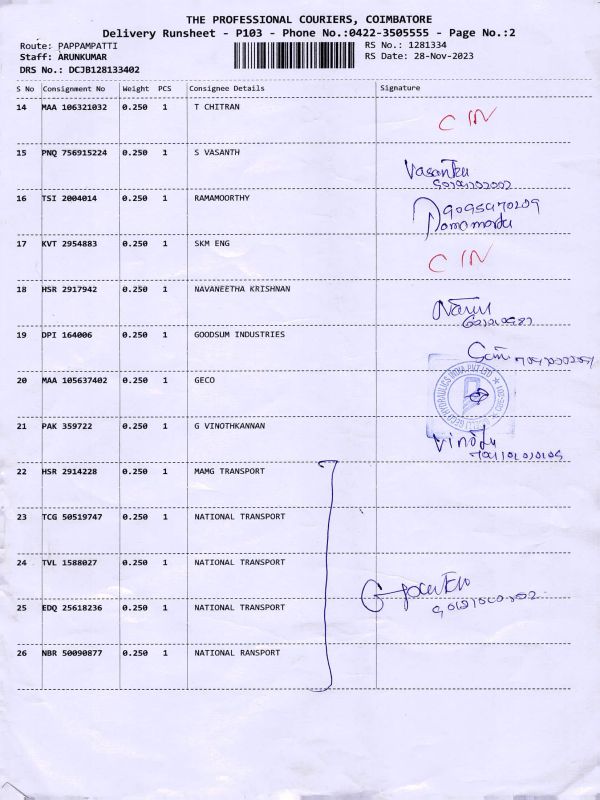 THE PROFESSIONAL COURIERS, COIMBATORE
Delivery Runsheet - P103 - Phone No.:0422-3505555 - Page No.:2
Route: PAPPAMPATTI
Staff: ARUNKUMAR
DRS No.: DCJB128133402
RS No.: 1281334
RS Date: 28-Nov-2023
S No Consignment No Weight PCS Consignee Details Signature
14 MAA 106321032 0.250 1 T CHITRAN
C IN
15 PNQ 756915224 0.250 1 S VASANTH
16 TSI 2004014 0.250 1 RAMAMOORTHY
9095470209
17 KVT 2954883 0.250 1 SKM ENG
C IN
18 HSR 2917942 0.250 1 NAVANEETHA KRISHNAN
19 DPI 164006 0.250 1 GOODSUM INDUSTRIES
20 MAA 105637402 0.250 1 GECO
21 PAK 359722 0.250 1 G VINOTHKANNAN
22 HSR 2914228 0.250 1 MAMG TRANSPORT
23 TCG 50519747 0.250 1 NATIONAL TRANSPORT
24 TVL 1588027 0.250 1 NATIONAL TRANSPORT
25 EDQ 25618236 0.250 1 NATIONAL TRANSPORT
26 NBR 50090877 0.250 1 NATIONAL RANSPORT